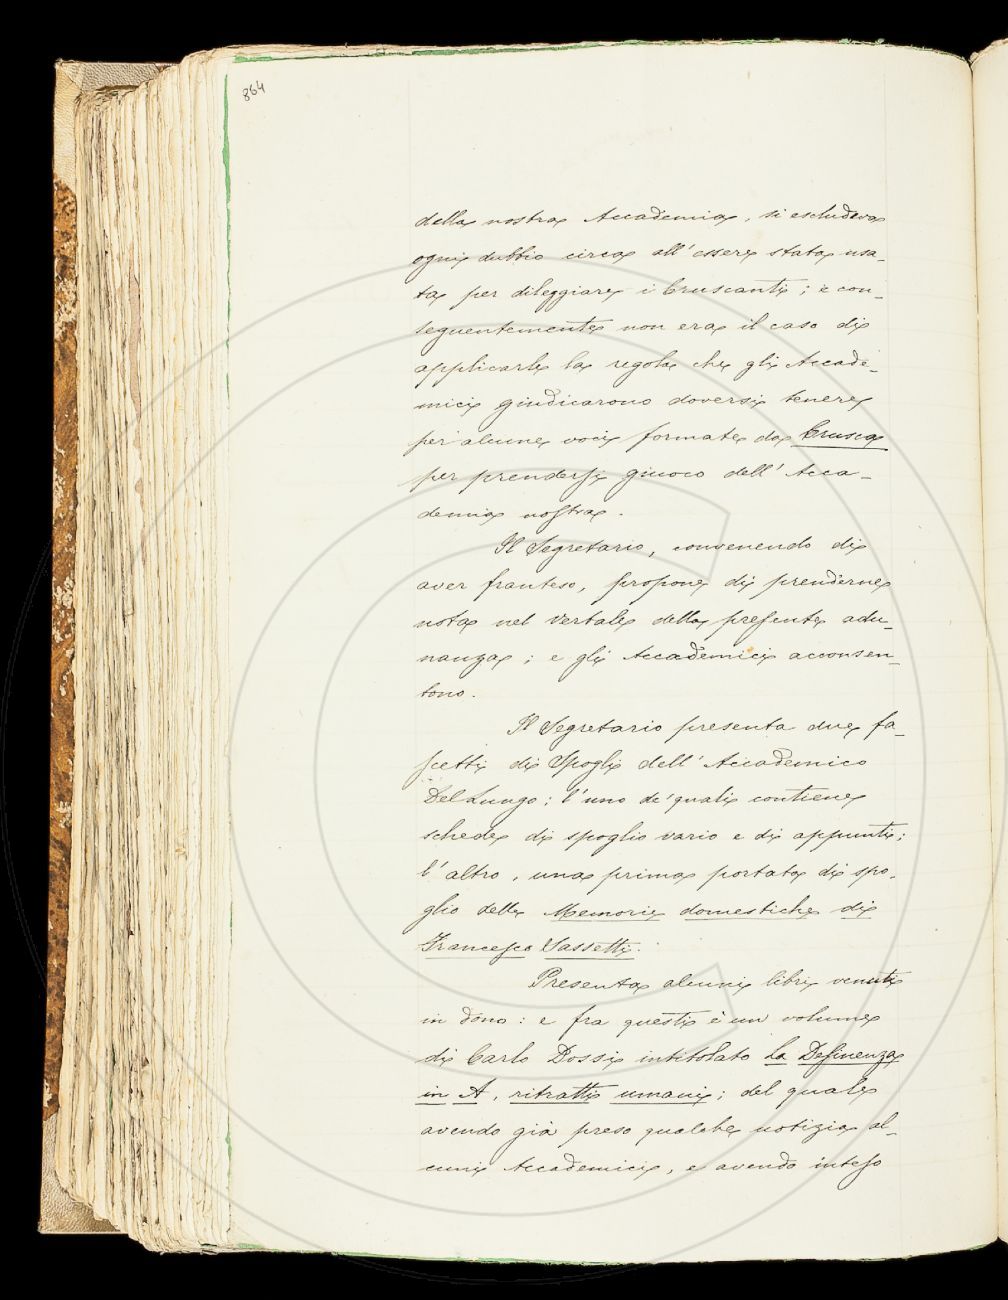 864
della nostra Accademia, si escludeva
ogni dubbio circa all'essere stata usa-
ta per dileggiare i Cruscanti; e con-
seguentemente non era il caso di
applicarle la regola che gli Accade-
mici giudicarono doversi tenere
per alcune voci formate da Crusca
per prendersi giuoco dell'Acca-
demia nostra.
Il Segretario, convenendo di
aver franteso, propone di prenderne
nota nel Verbale della presente adu-
nanza; e gli Accademici acconsen-
tono.
Il Segretario presenta due fa-
scetti di Spogli dell'Accademico
Del Lungo; l'uno de' quali contiene
schede di spoglio vario e di appunti;
l'altro, una prima portata di spo-
glio delle Memorie domestiche di
Francesco Sassetti.
Presenta alcuni libri venuti
in dono: e fra questi è un volume
di Carlo Dossi intitolato La Desinenza
in A, ritratti umani; del quale
avendo già preso qualche notizia al-
cuni Accademici, e avendo inteso